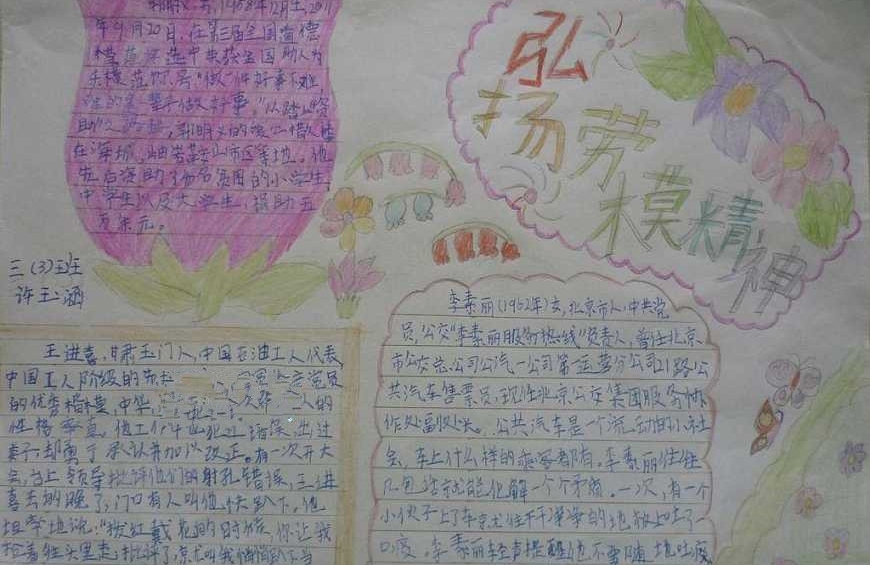 郭明义,男,1958年12月生,2011
年9月20日,在第三届全国道德
模范评选中荣获全国助人为
乐模范称号。"做一件好事不难
难的是一辈子做好事。"从踏上资
助
在海城、岫岩、鞍山市区等地。他
先后资助了 名贫困的小学生,
中学生以及大学生,捐助五
万余元。
三(3)班
许玉涵
弘
扬劳
模精神
王进喜,甘肃玉门人,中国石油工人代表,
中国工人阶级的 党员
的优秀楷模,中华 人的
性格 直,但工作中出过错误,出过
差错却勇于承认并加以改正。有一次开大
会,会上领导批评他们的射孔错误,王进
喜去的晚了,门口有人叫他快趴下,他
坦率地说:"披红戴花的时候,你让我
抢着往头里走,批评了,你叫我悄悄趴下当
李素丽(1962年)女,北京市人,中共党
员,公交"李素丽服务热线"负责人,曾任北京
市公交总公司公汽一公司第一运营分公司21路公
共汽车售票员,现任北京公交集团服务协
作处副处长。公共汽车是一个流动的小社
会,车上什么样的乘客都有。李素丽往往
几句话就能化解一个个矛盾。一次,有一个
小伙子上了车就往干净净的地板上吐了一
口痰。李素丽轻声提醒他不要随地吐痰